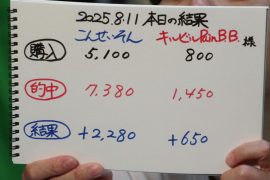 2025.8.11 本日の結果
こんせいそん キルビルRunB.B. 様
購入 5,100 800
的中 7,380 1,450
結果 +2,280 +650